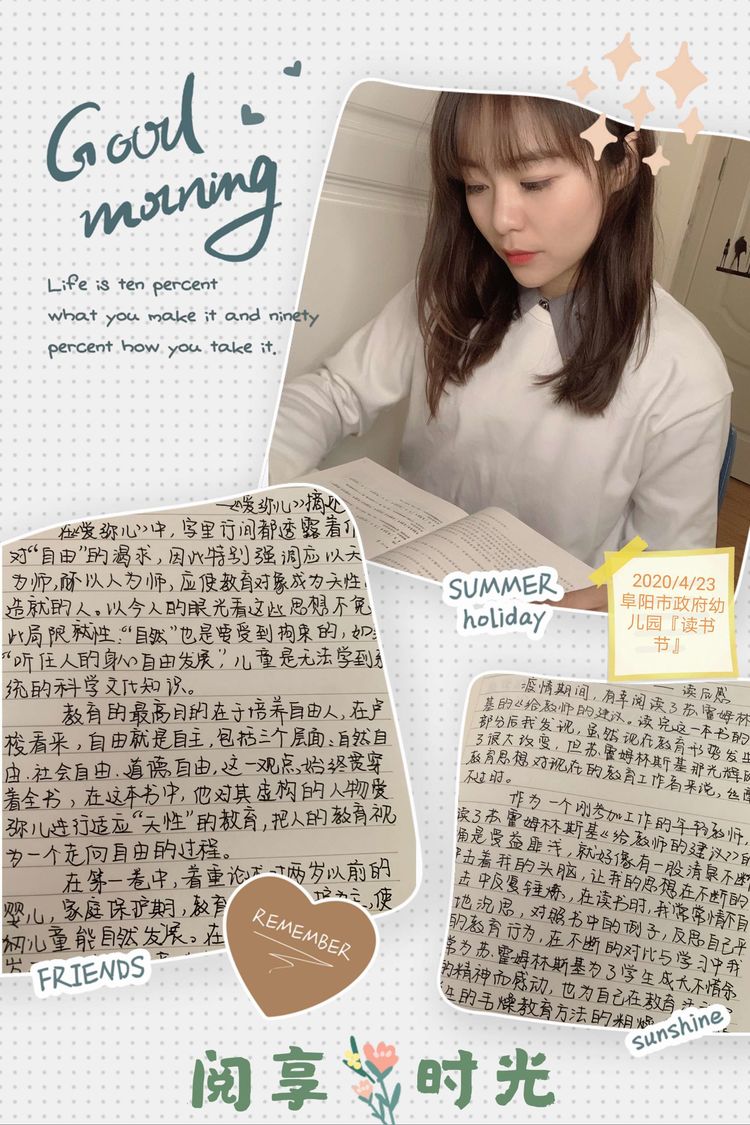 Good
morning
Life is ten percent
what you make it and ninety
percent how you take it.
SUMMER
holiday
2020/4/23
阜阳市政府幼
儿园『读书
节』
《爱弥儿》摘
在《爱弥儿》中，字里行间都透露着
对“自由”的渴求，因此特别强调应以天
为师，以人为师，应使教育对象成为天性
造就的人。以今人的眼光看这些思想不免
此局限就性。“自然”也是要受到拘束的，如
“听任人的身心自由发展”，儿童是无法学到系
统的科学文化知识。
教育的最高目的在于培养自由人，在卢
梭看来，自由就是自主，包括三个层面：自然自
由、社会自由、道德自由，这一观点始终贯穿
着全书，在这本书中，他对其虚构的人物爱
弥儿进行适应“天性”的教育，把人的教育视
为一个走向自由的过程。
在第一卷中，着重论述对两岁以前的
婴儿，家庭保护期，教育 为主，使
幼儿童能自然发展。在
FRIENDS
REMEMBER
——读后感
疫情期间，有幸阅读了苏霍姆林
基的《给教师的建议》。读完这一本书的
部分后我发现，虽然现在教育形势发生
了很大改变，但苏霍姆林斯基那光辉的
教育思想对现在的教育工作者来说，丝
不过时。
作为一个刚参加工作的年轻教师，
读了苏霍姆林斯基《给教师的建议》的
确是受益匪浅，就好像有一股清泉不断
冲击着我的头脑，让我的思想在不断的
击中反复锤炼，在读书时，我常常情不自
地沉思，对照书中的例子，反思自己平
的教育行为，在不断的对比与学习中我
常为苏霍姆林斯基为了学生成长不惜余
的精神而感动，也为自己在教育
生的毛燥教育方法的粗糙
sunshine
阅享时光